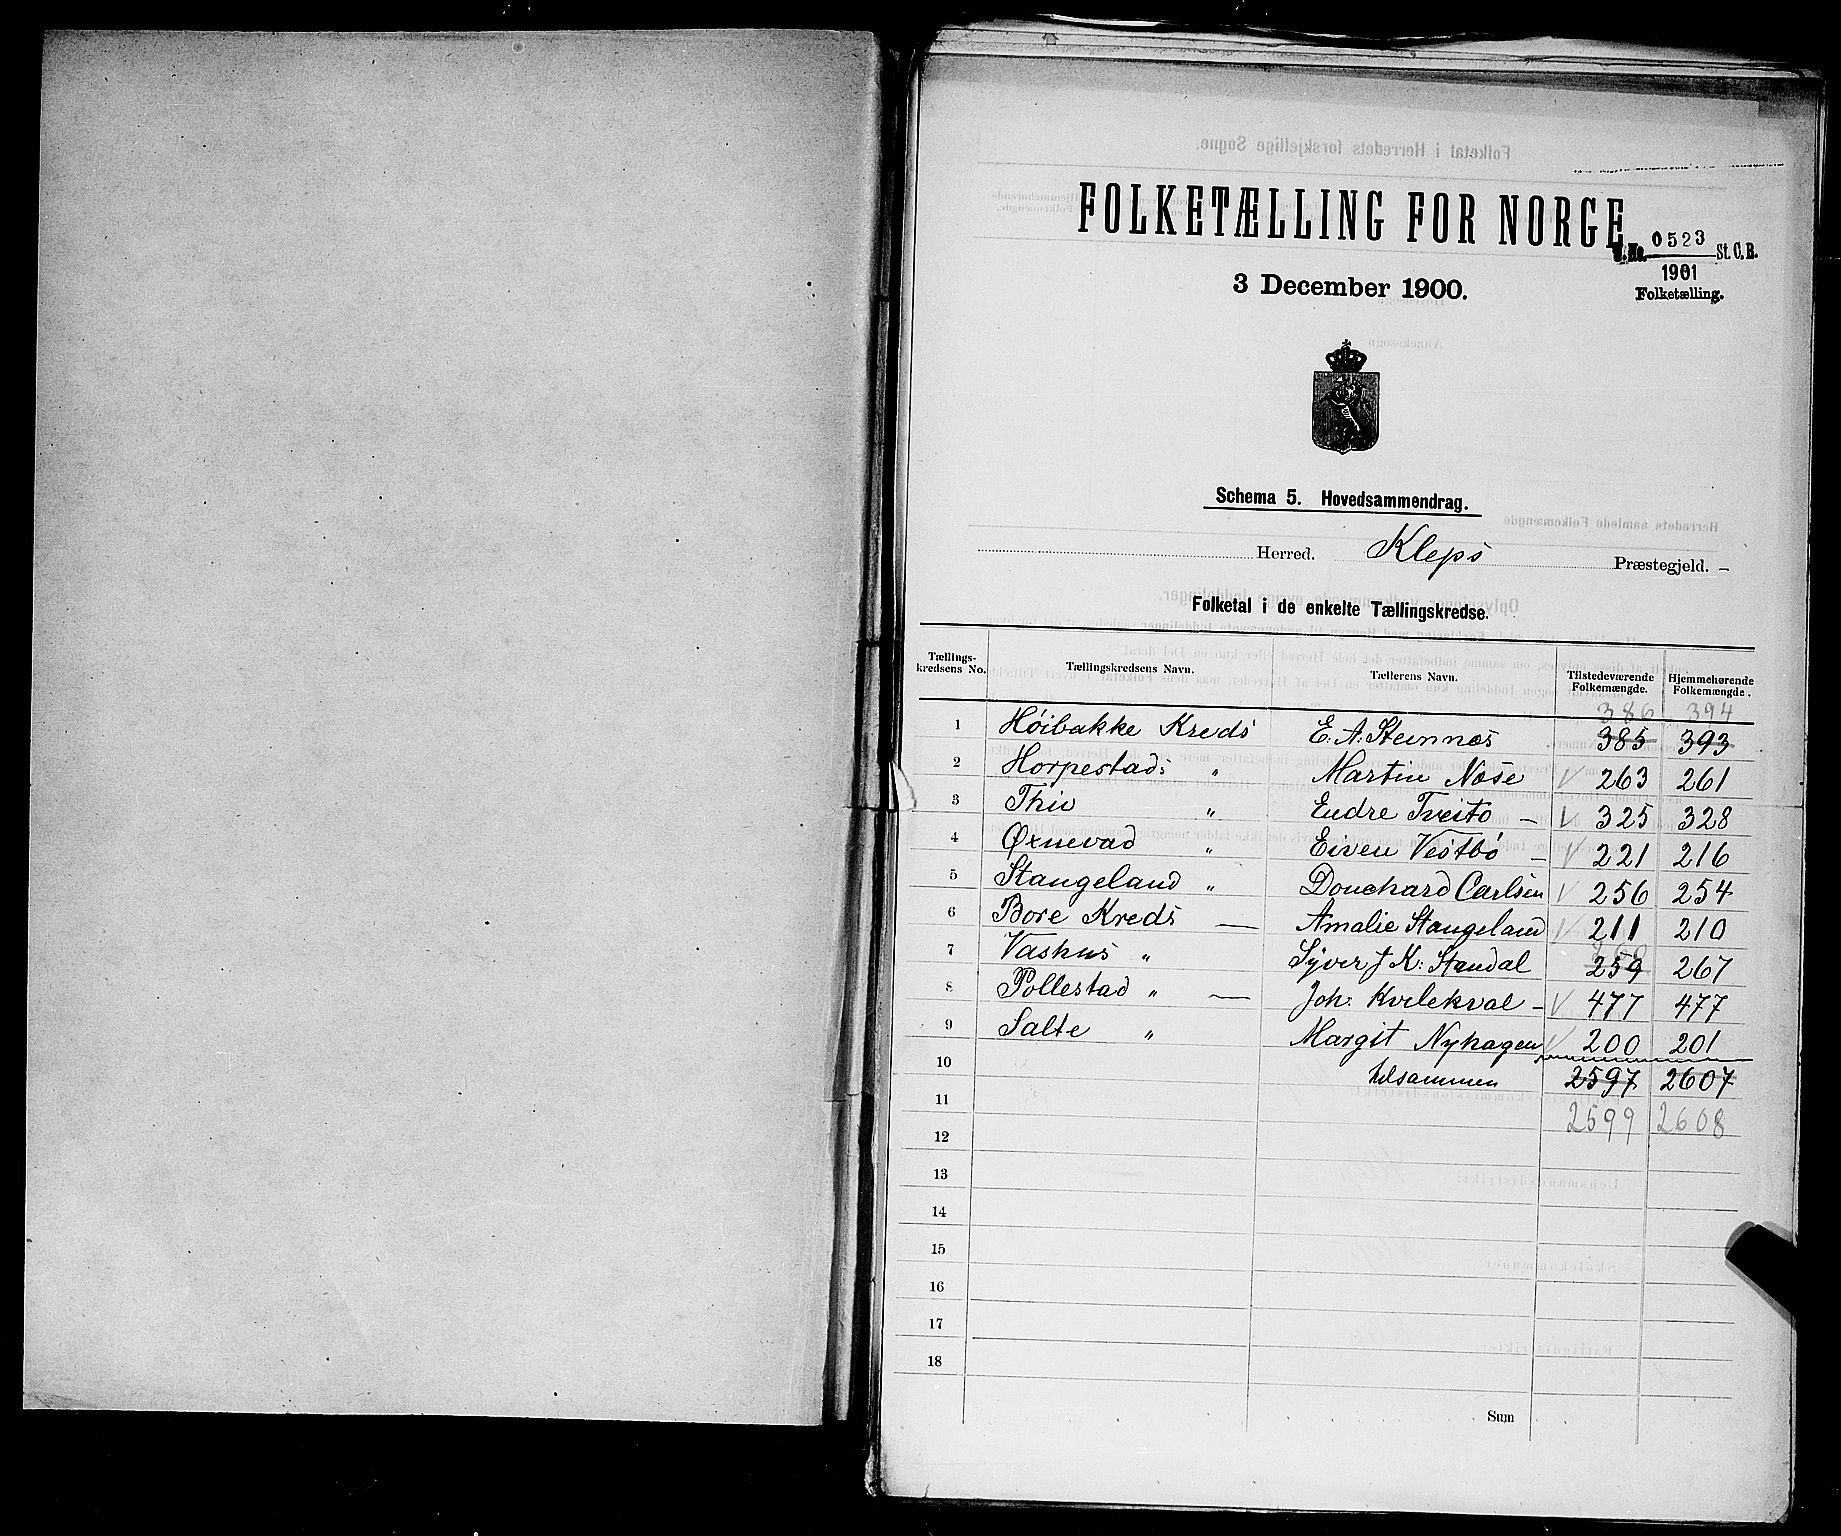 FOLKETÆLLING FOR NORGE
J.No. 0523 St. C. B.
1901
Folketælling.
3 December 1900.
Schema 5. Hovedsammendrag.
Herred. Klepps Præstegjeld. –
Folketal i de enkelte Tællingskredse.
Tællings-kredsens No. Tællingskredsens Navn. Tællerens Navn. Tilstedeværende Folkemængde. Hjemmehørende Folkemængde.
386 394
1 Høibakke Kreds E. A. Steinnæs 385 393
2 Horpestads " Martin Næse 263 261
3 Thu " Endre Tveito – 325 328
4 Øxnevad " Eiven Vestbø – 221 216
5 Stangeland " Douchard Carlsen 256 254
6 Bore Kreds — Amalie Stangeland 211 210
7 Vashus " Syver J K: Standal 259 267
8 Pollestad " — Joh: Kvilekval – 477 477
9 Salte " Margit Nyhagen 200 201
10 tilsammen 2597 2607
11 2599 2608
12
13
14
15
16
17
18
Sum